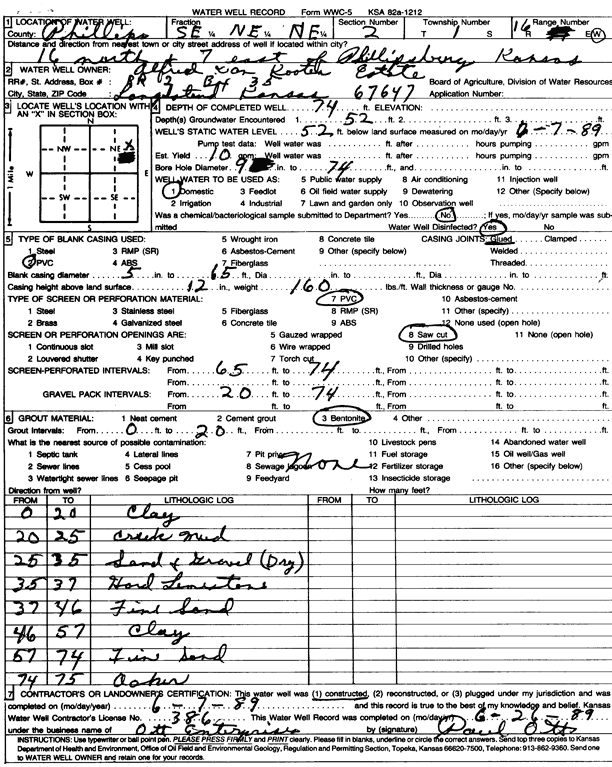 WATER WELL RECORD Form WWC-5 KSA 82a-1212
1 LOCATION OF WATER WELL: Fraction Section Number Township Number Range Number
County: Phillips SE ¼ NE ¼ NE ¼ 2 T 1 S R 16 E W
Distance and direction from nearest town or city street address of well if located within city?
16 north 7 east of Phillipsburg Kansas
2 WATER WELL OWNER: Alfred Van Kooten Estate
RR#, St. Address, Box #: RR 1 Bx 35 Board of Agriculture, Division of Water Resources
City, State, ZIP Code : Kansas 67647 Application Number:
3 LOCATE WELL'S LOCATION WITH AN "X" IN SECTION BOX:
N
NW NE X
W E
SW SE
S
1 Mile
4 DEPTH OF COMPLETED WELL 74 ft. ELEVATION:
Depth(s) Groundwater Encountered 1 52 ft. 2 ft. 3 ft.
WELL'S STATIC WATER LEVEL 52 ft. below land surface measured on mo/day/yr 6-7-89
Pump test data: Well water was ft. after hours pumping gpm
Est. Yield 10 gpm: Well water was ft. after hours pumping gpm
Bore Hole Diameter 9 in. to 74 ft., and in. to ft.
WELL WATER TO BE USED AS: 5 Public water supply 8 Air conditioning 11 Injection well
1 Domestic 3 Feedlot 6 Oil field water supply 9 Dewatering 12 Other (Specify below)
2 Irrigation 4 Industrial 7 Lawn and garden only 10 Observation well
Was a chemical/bacteriological sample submitted to Department? Yes No ; If yes, mo/day/yr sample was submitted Water Well Disinfected? Yes No
5 TYPE OF BLANK CASING USED: 5 Wrought iron 8 Concrete tile CASING JOINTS: Glued Clamped
1 Steel 3 RMP (SR) 6 Asbestos-Cement 9 Other (specify below) Welded
2 PVC 4 ABS 7 Fiberglass Threaded
Blank casing diameter 5 in. to 65 ft., Dia in. to ft., Dia in. to ft.
Casing height above land surface 12 in., weight 160 lbs./ft. Wall thickness or gauge No.
TYPE OF SCREEN OR PERFORATION MATERIAL: 7 PVC 10 Asbestos-cement
1 Steel 3 Stainless steel 5 Fiberglass 8 RMP (SR) 11 Other (specify)
2 Brass 4 Galvanized steel 6 Concrete tile 9 ABS 12 None used (open hole)
SCREEN OR PERFORATION OPENINGS ARE: 5 Gauzed wrapped 8 Saw cut 11 None (open hole)
1 Continuous slot 3 Mill slot 6 Wire wrapped 9 Drilled holes
2 Louvered shutter 4 Key punched 7 Torch cut 10 Other (specify)
SCREEN-PERFORATED INTERVALS: From 65 ft. to 74 ft., From ft. to ft.
From ft. to ft., From ft. to ft.
GRAVEL PACK INTERVALS: From 20 ft. to 74 ft., From ft. to ft.
From ft. to ft., From ft. to ft.
6 GROUT MATERIAL: 1 Neat cement 2 Cement grout 3 Bentonite 4 Other
Grout Intervals: From 0 ft. to 20 ft., From ft. to ft., From ft. to ft.
What is the nearest source of possible contamination: 10 Livestock pens 14 Abandoned water well
1 Septic tank 4 Lateral lines 7 Pit privy 11 Fuel storage 15 Oil well/Gas well
2 Sewer lines 5 Cess pool 8 Sewage lagoon none 12 Fertilizer storage 16 Other (specify below)
3 Watertight sewer lines 6 Seepage pit 9 Feedyard 13 Insecticide storage
Direction from well? How many feet?
FROM TO LITHOLOGIC LOG FROM TO LITHOLOGIC LOG
0 20 Clay
20 25 Creek Mud
25 35 Sand & Gravel (Dry)
35 37 Hard Limestone
37 46 Fine Sand
46 57 Clay
57 74 Fine Sand
74 75 Ocher
7 CONTRACTOR'S OR LANDOWNER'S CERTIFICATION: This water well was (1) constructed, (2) reconstructed, or (3) plugged under my jurisdiction and was
completed on (mo/day/year) 6-7-89 and this record is true to the best of my knowledge and belief. Kansas
Water Well Contractor's License No. 386 This Water Well Record was completed on (mo/day/yr) 6-26-89
under the business name of Ott Enterprises by (signature) Paul Ott
INSTRUCTIONS: Use typewriter or ball point pen. PLEASE PRESS FIRMLY and PRINT clearly. Please fill in blanks, underline or circle the correct answers. Send top three copies to Kansas
Department of Health and Environment, Office of Oil Field and Environmental Geology, Regulation and Permitting Section, Topeka, Kansas 66620-7500, Telephone: 913-862-9360. Send one
to WATER WELL OWNER and retain one for your records.